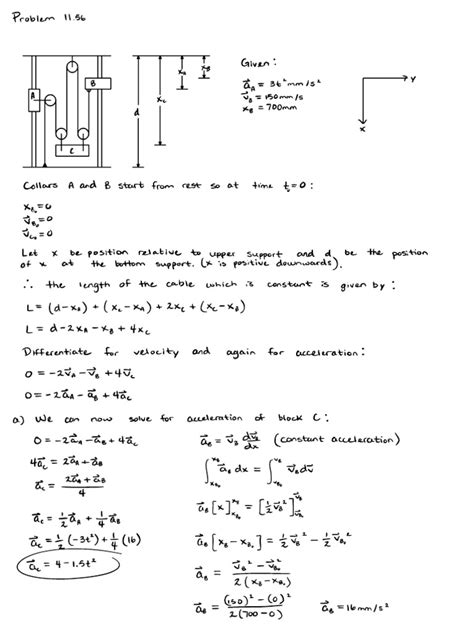 Problem 11.56
Given:
a⃗_A = 3t² mm/s²
v⃗_B = 150 mm/s
x_B = 700mm
A
B
C
d
x_C
x_A
x_B
y
x
Collars A and B start from rest so at time t₀=0:
x_B₀=0
v⃗_B₀=0
v⃗_C₀=0
Let x be position relative to upper support and d be the position
of x at the bottom support. (x is positive downwards).
∴ the length of the cable which is constant is given by:
L = (d-x_A) + (x_C-x_A) + 2x_C + (x_C-x_B)
L = d-2x_A - x_B + 4x_C
Differentiate for velocity and again for acceleration:
0 = -2v⃗_A - v⃗_B + 4v⃗_C
0 = -2a⃗_A - a⃗_B + 4a⃗_C
a) We can now solve for acceleration of block C:
0 = -2a⃗_A - a⃗_B + 4a⃗_C
4a⃗_C = 2a⃗_A + a⃗_B
a⃗_C = (2a⃗_A + a⃗_B)/4
a⃗_C = 1/2 a⃗_A + 1/4 a⃗_B
a⃗_C = 1/2 (-3t²) + 1/4 (16)
a⃗_C = 4 - 1.5t²
a⃗_B = v⃗_B dv⃗_B/dx (constant acceleration)
∫_{x_B₀}^{x_B} a⃗_B dx = ∫_{v_B₀}^{v_B} v⃗_B dv⃗
a⃗_B [x]_{x_B₀}^{x_B} = [1/2 v⃗²]_{v⃗_B₀}^{v⃗_B}
a⃗_B [x_B - x_B₀] = 1/2 v⃗_B² - 1/2 v⃗_B₀²
a⃗_B = (v⃗_B² - v⃗_B₀²)/(2(x_B - x_B₀))
a⃗_B = ((150)² - (0)²)/(2(700 - 0)) a⃗_B = 16 mm/s²